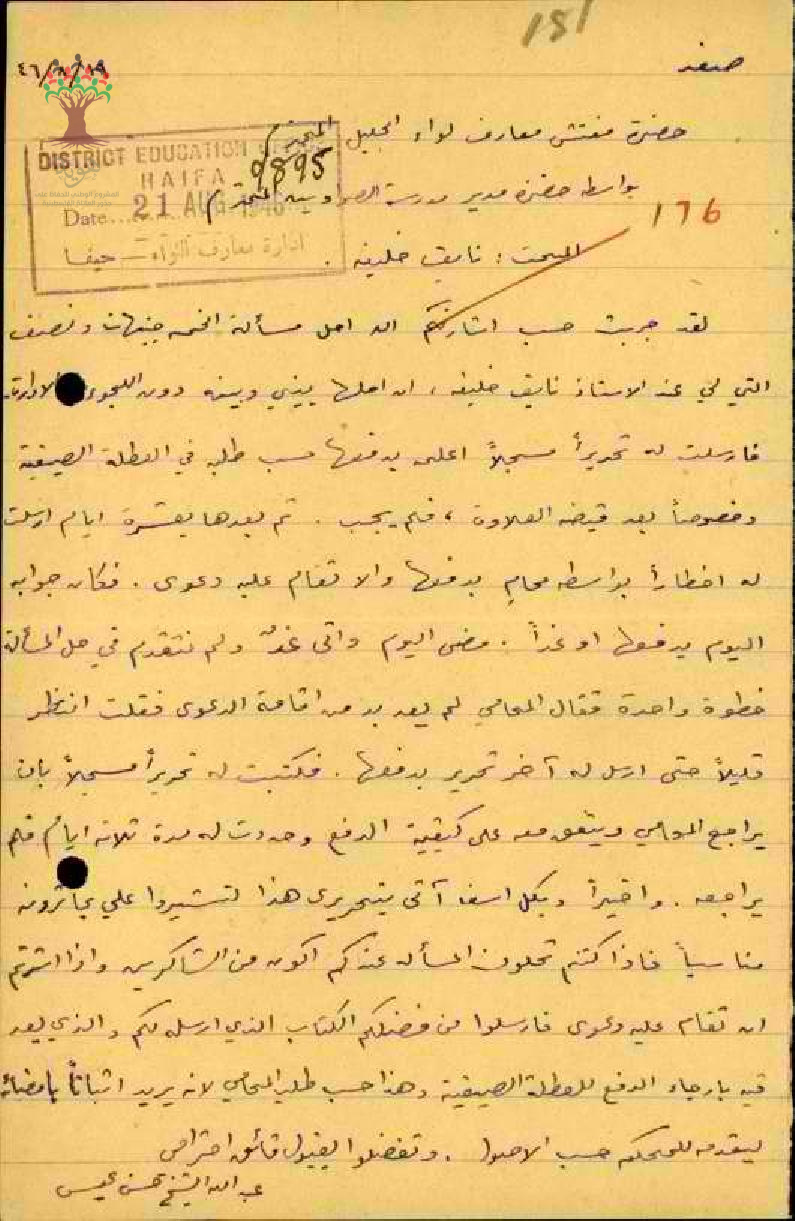 151
صفد
٤٦/٨/١٩
حضرة مفتش معارف لواء الجليل المحترم
DISTRICT EDUCATION OFFICE
HAIFA
9895
Date..... 21 AUG 1946
ادارة معارف اللواء — حيفا
بواسطة حضرة مدير مدرسة المحترم
176
المبحث : نايف خليفه .
لقد جربت حسب اشارتكم ان احل مسألة الخمسة جنيهات ونصف
التي لي عند الاستاذ نايف خليفه ، ان احلها بيني وبينه دون اللجوء للادارة
فارسلت له تحريراً مسجلاً اعلمه بدفعها حسب طلبه في العطلة الصيفية
وخصوصاً بعد قبضه العلاوة ، فلم يجب . ثم بعدها بعشرة ايام ارسلت
له اخطاراً بواسطة محامٍ بدفعها والا تقام عليه دعوى . فكان جوابه
اليوم يدفعها او غداً . مضى اليوم واتى غدٌ ولم نتقدم في حل المسألة
خطوة واحدة فقال المحامي لم يعد بد من اقامة الدعوى فقلت انتظر
قليلاً حتى ارسل له آخر تحرير بدفعها . فكتبت له تحريراً مسجلاً بان
يراجع المحامي ويتفق معه على كيفية الدفع وحددت له مدة ثلاثة ايام فلم
يراجعه . واخيراً وبكل اسف آتي بتحريري هذا لتشيروا علي بما ترونه
مناسباً فاذا كنتم تحلون المسألة عندكم اكون من الشاكرين واذا اشرتم
ان تقام عليه دعوى فارسلوا من فضلكم الكتاب الذي ارسله لكم والذي يعد
فيه بارجاء الدفع للعطلة الصيفية وهذا حسب طلب المحامي لانه يريد اثباتاً بامضائه
ليقدمه للمحكمه حسب الاصول . وتفضلوا بقبول فائق احترامي
عبد الله الشيخ حسن